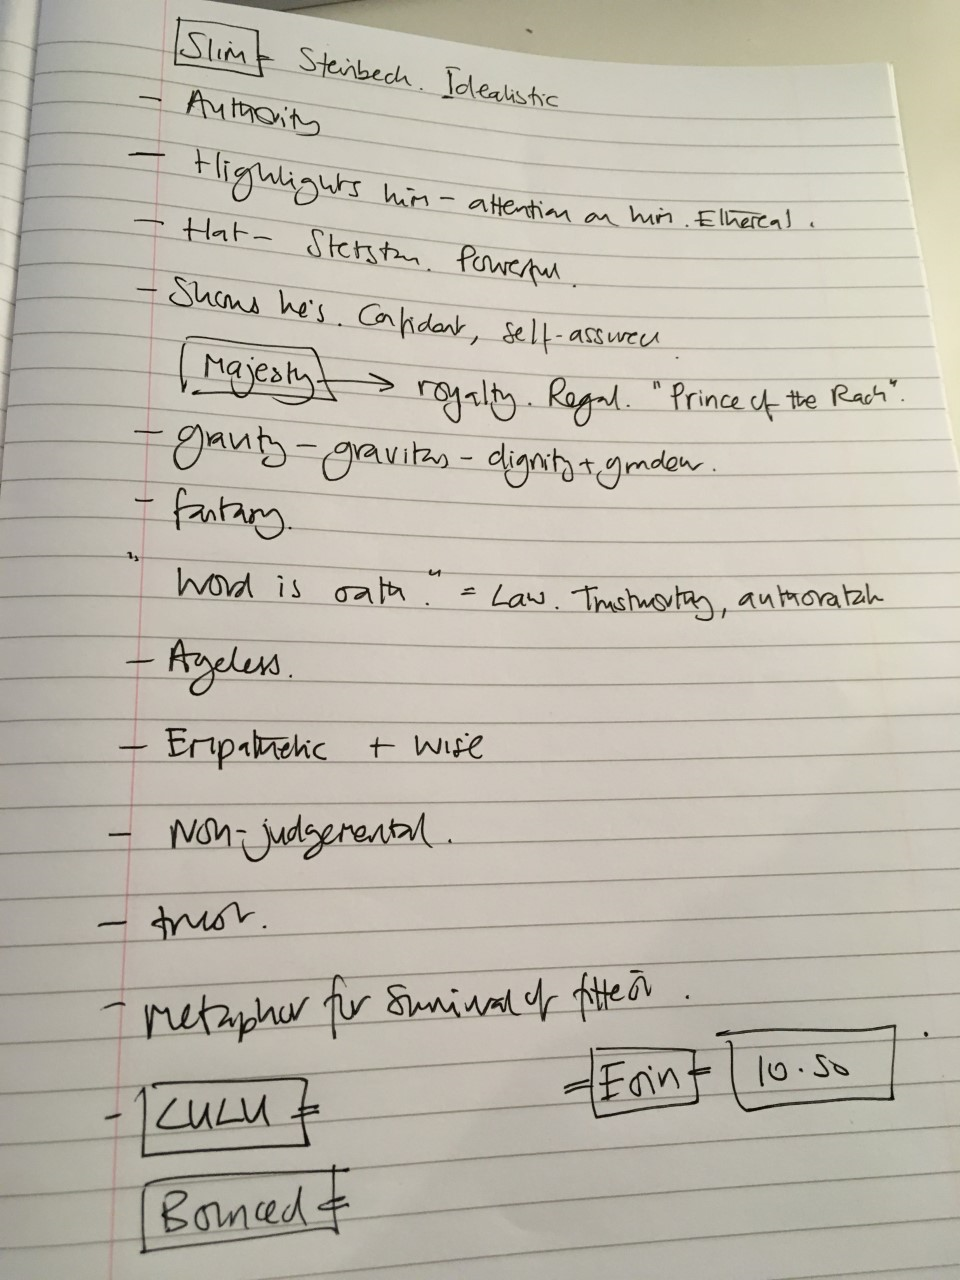 Slim - Steinbeck. Idealistic
- Authority
- Highlights him - attention on him. Ethereal.
- Hat - Stetson. Powerful.
- Shows he's. Confident, self-assured
Majesty → royalty. Regal. "Prince of the Rach".
- gravity - gravitas - dignity + grandeur.
- fantasy.
"Word is oath." = Law. Trustworthy, authoratah
- Ageless.
- Empathetic + wise
- Non-judgemental.
- trust.
- Metaphor for Survival of fittest.
= Eoin = 10.50
- LULU =
Bounced =